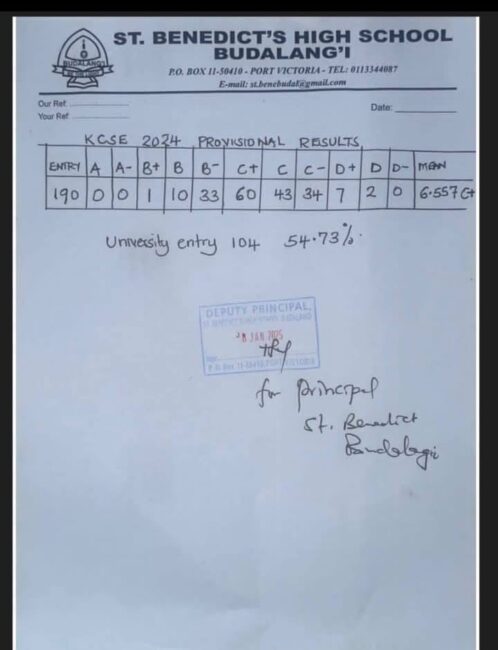 ST. BENEDICT'S HIGH SCHOOL
BUDALANG'I
P.O. BOX 11-50410 - PORT VICTORIA - TEL: 0113344087
E-mail: st.benebudal@gmail.com
BUDALANG'I
Our Ref
Your Ref
Date:
KCSE 2024 PROVISIONAL RESULTS
ENTRY A A- B+ B B- C+ C C- D+ D D- MEAN
190 0 0 1 10 33 60 43 34 7 2 0 6.557 C+
University entry 104 54.73%
DEPUTY PRINCIPAL,
JAN 2025
for Principal
St. Benedict